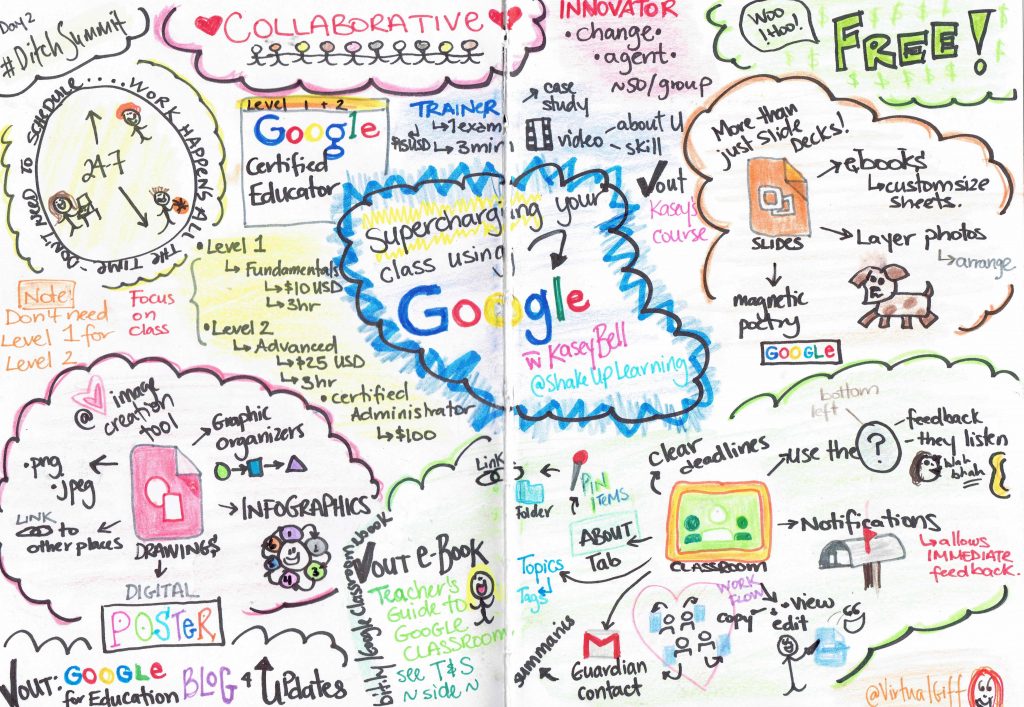 Day 2
#DitchSummit
COLLABORATIVE
INNOVATOR
• change •
• agent •
~50/group
WOO
!Hoo!
FREE!
DON'T NEED TO SCHEDULE.....WORK HAPPENS ALL THE TIME
24-7
Level 1 + 2
Google
Certified
Educator
TRAINER
$15USD
↳ 1 exam
↳ 3 min
→ case
study
video
about U
skill
✓out
Kasey's
course
Supercharging your
class using
Google
w Kasey Bell
@ShakeUpLearning
• Level 1
↳ Fundamentals
↳ $10 USD
↳ 3hr
• Level 2
↳ Advanced
↳ $25 USD
↳ 3hr
• certified
Administrator
↳ $100
Note!
Don't need
Level 1 for
Level 2
Focus
on
class
More than
just Slide
Decks!
SLIDES
ebooks
↳ custom size
sheets.
Layer photos
↳ arrange
magnetic
poetry
GOOGLE
@ image
creation
tool
Graphic
organizers
• png
• jpeg
LINK
to
other places
DRAWINGS
INFOGRAPHICS
1
2
3
4
5
6
DIGITAL
POSTER
✓OUT: GOOGLE
for Education
BLOG
4 Updates
bit.ly/googleclassroomebook
✓OUT e-BOOK
Teacher's
Guide to
GOOGLE
CLASSROOM
see T&S
~ side ~
Link
Folder
PIN
ITEMS
ABOUT
Tab
Topics
Tags
summaries
clear
deadlines
CLASSROOM
bottom
left
use the
?
feedback
they listen
blah
blah
Notifications
↳ allows
IMMEDIATE
feedback.
WORK
FLOW
copy
• view
• edit
Guardian
contact
@VirtualGiff